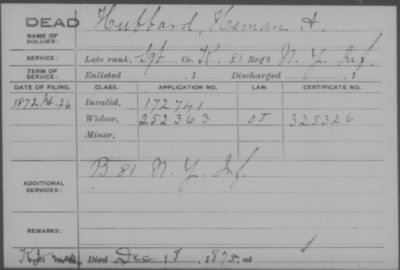 DEAD
NAME OF SOLDIER: Hubbard, Heman A.
SERVICE: Late rank, Sgt Co. K. 81 Reg't N. Y. Inf.
TERM OF SERVICE: Enlisted , 1 Discharged , 1
DATE OF FILING. CLASS. APPLICATION NO. LAW. CERTIFICATE NO.
1872 26 Invalid, 172741
Widow, 252363 OT 325326
Minor,
ADDITIONAL SERVICES: B 81 N. Y. Inf.
REMARKS:
Died Dec 18, 1878, at